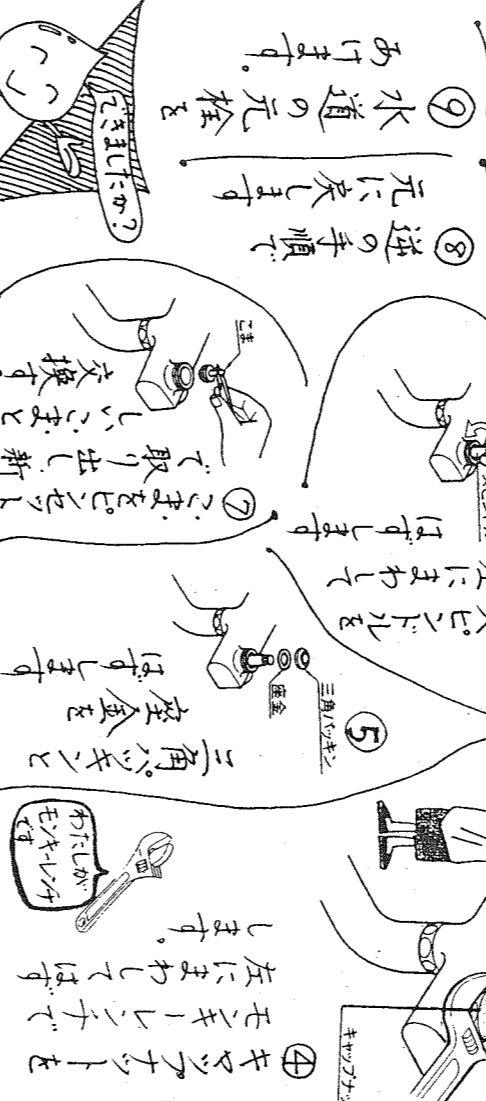 ④ キャップナットを
モンキーレンチで
左にまわしてはず
します。
キャップナッ
わたしが
モンキーレンチ
です
⑤ 三角パッキンと
座金を
はずします
三角パッキン
座金
ピンドルを
左にまわして
はずします
⑦ こまをピンセット
で取り出し新
しいこまと
交換す
こま
⑧ 逆の手順で
元に戻します
⑨ 水道の元栓を
あけます。
できましたか?